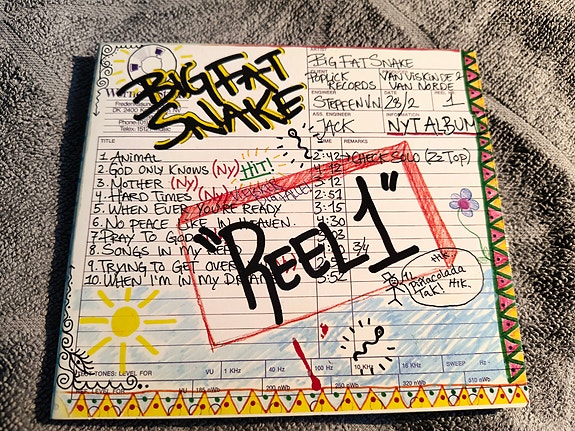 BIG FAT
SNAKE
ARTIST
BIG FAT SNAKE
POPLICK
RECORDS
VAN VISKINDE 2
VAN NORDE
REEL
ENGINEER
STEFFEN VN
28/2
1
ASS. ENGINEER
JACK
INFORMATION
NYT ALBUM
TITLE
TIME
REMARKS
1. ANIMAL 2:42 → CHECK SOLO (ZZ TOP)
2. GOD ONLY KNOWS (NY) HIT! 4:12
3. MOTHER (NY) 3:12
4. HARD TIMES (NY) 2:51
5. WHEN EVER YOU'RE READY 3:15
6. NO PEACE LIKE IN HEAVEN. 4:30
7. PRAY TO GOD :03
8. SONGS IN MY 3/4
9. TRYING TO GET OVER
10. WHEN I'M IN MY DREAM 3:52
"REEL 1"
HIK
PINACOLADA
TAK! HIK.
TEST TONES: LEVEL FOR VU 1 KHz 40 Hz 100 Hz 10 KHz 16 KHz SWEEP Hz -
LEVEL FOR VU 185 nWb 200 nWb 250 nWb 320 nWb 510 nWb